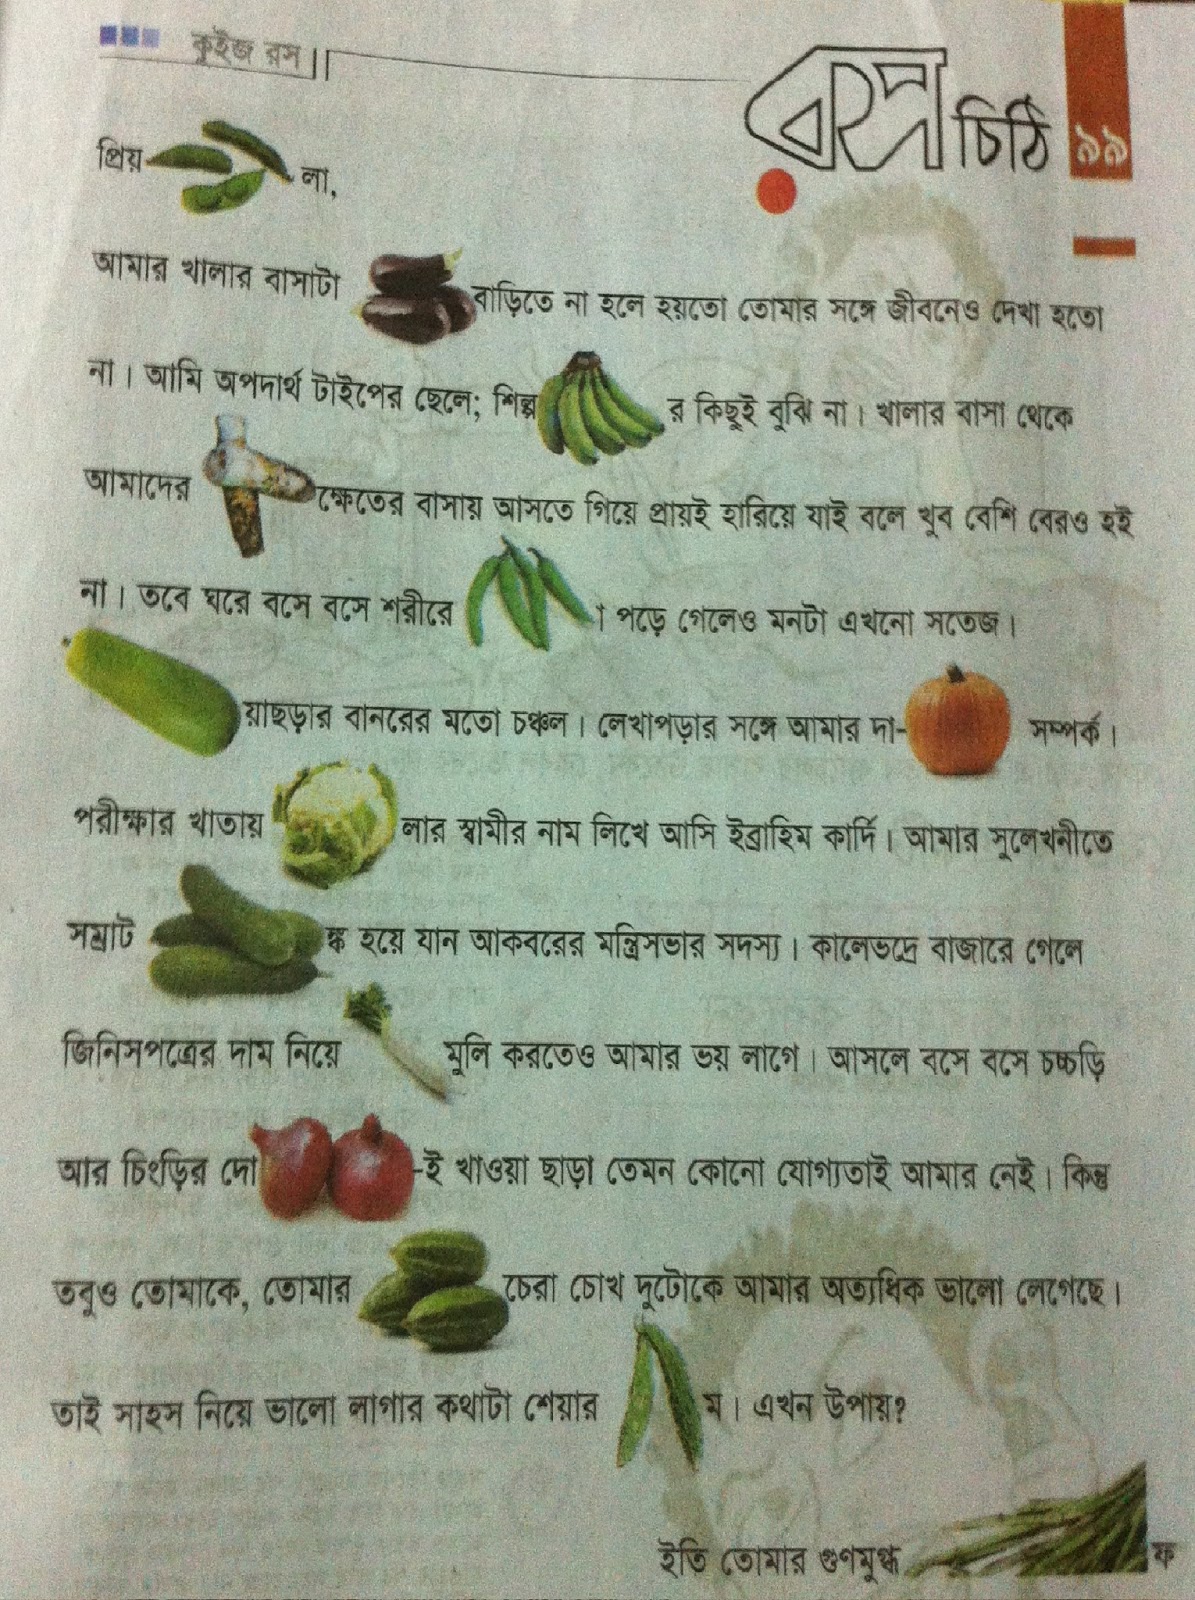 কুইজ রস
রস চিঠি ৯৯
প্রিয় লা,
আমার খালার বাসাটা বাড়িতে না হলে হয়তো তোমার সঙ্গে জীবনেও দেখা হতো
না। আমি অপদার্থ টাইপের ছেলে; শিল্প র কিছুই বুঝি না। খালার বাসা থেকে
আমাদের ক্ষেতের বাসায় আসতে গিয়ে প্রায়ই হারিয়ে যাই বলে খুব বেশি বেরও হই
না। তবে ঘরে বসে বসে শরীরে া পড়ে গেলেও মনটা এখনো সতেজ।
য়াছড়ার বানরের মতো চঞ্চল। লেখাপড়ার সঙ্গে আমার দা- সম্পর্ক।
পরীক্ষার খাতায় লার স্বামীর নাম লিখে আসি ইব্রাহিম কার্দি। আমার সুলেখনীতে
সম্রাট ঙ্ক হয়ে যান আকবরের মন্ত্রিসভার সদস্য। কালেভদ্রে বাজারে গেলে
জিনিসপত্রের দাম নিয়ে মুলি করতেও আমার ভয় লাগে। আসলে বসে বসে চচ্চড়ি
আর চিংড়ির দো -ই খাওয়া ছাড়া তেমন কোনো যোগ্যতাই আমার নেই। কিন্তু
তবুও তোমাকে, তোমার চেরা চোখ দুটোকে আমার অত্যধিক ভালো লেগেছে।
তাই সাহস নিয়ে ভালো লাগার কথাটা শেয়ার ম। এখন উপায়?
ইতি তোমার গুণমুগ্ধ ফ